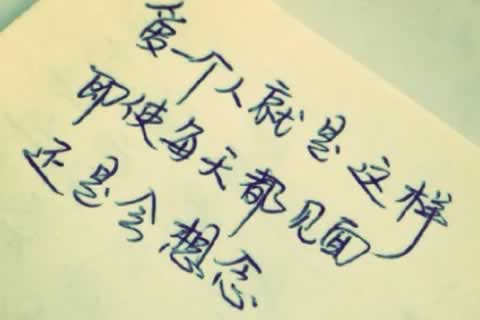 爱一个人就是这样
即使每天都见面
还是会想念